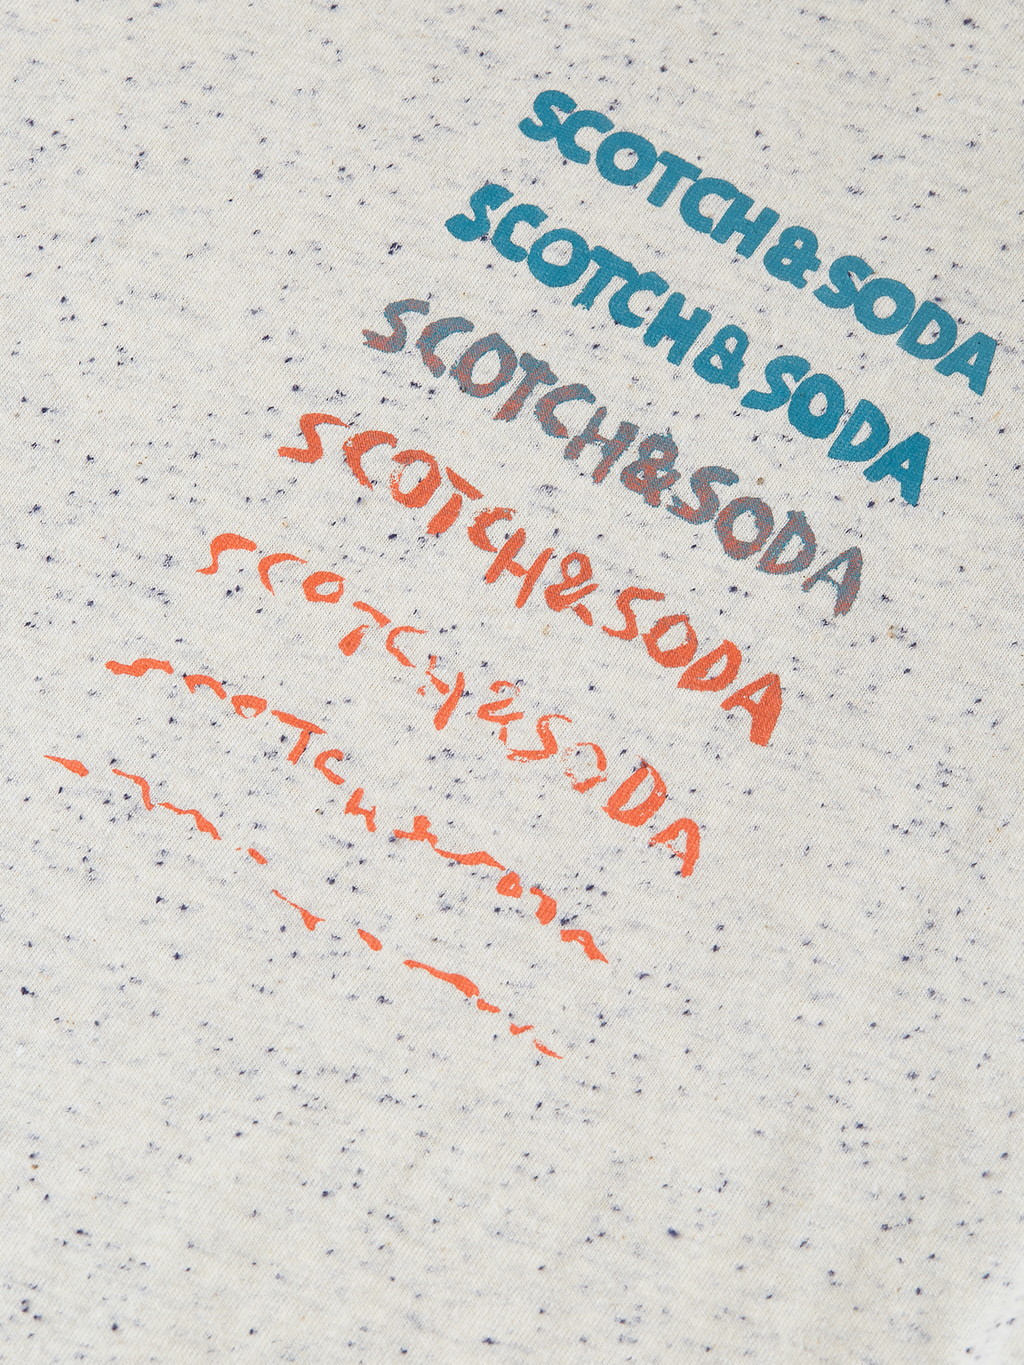 SCOTCH & SODA
SCOTCH & SODA
SCOTCH & SODA
SCOTCH & SODA
SCOTCH & SODA
SCOTCH & SODA